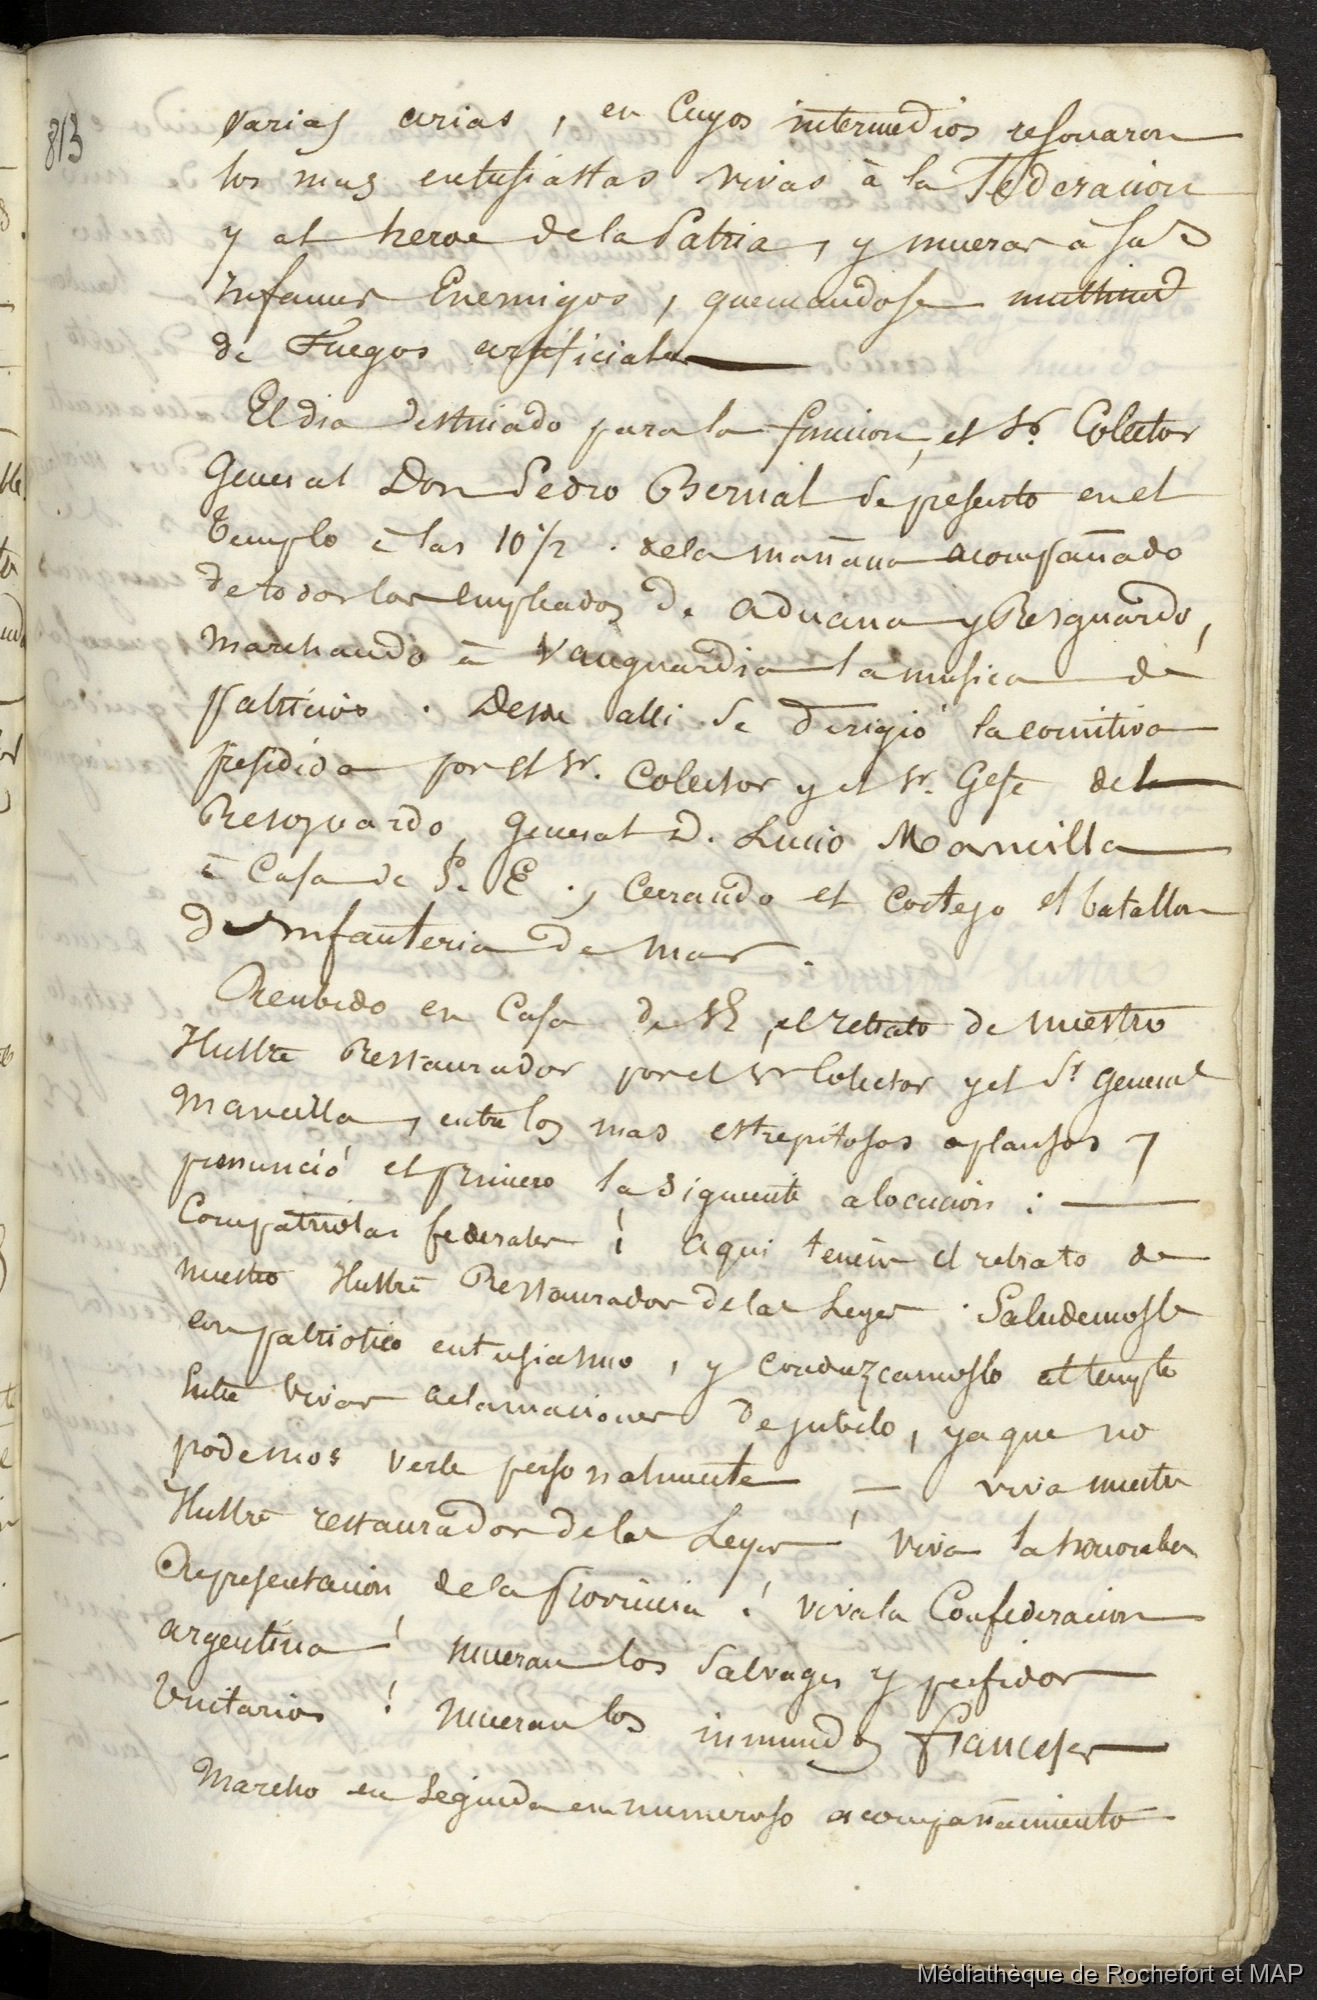 813
varias arias, en Cuyos intermedios resonaron
los mas entusiastas vivas à la Federacion
y al heroe de la Patria, y mueras à sus
infames Enemigos, quemandose multitud
de Fuegos artificiales
El dia destinado para la funcion, el Sr. Colector
General Don Pedro Bernal se presento en el
Templo à las 10 1/2. de la mañana acompañado
de todos los empleados de aduana y Resguardo,
marchando à Vanguardia la musica de
patricios. Desde alli se dirigió la comitiva
presidida por el Sr. Colector y el Sr. Gefe del
Resguardo, General D. Lucio Mancilla
à Casa de S. E., cerrando el cortejo el batallon
de infanteria de mar.
Recibido en Casa de SE, el retrato de nuestro
Illustre Restaurador por el Sr Colector y el Sr General
Mancilla, entre los mas estrepitosos aplausos,
pronunció el primero la siguiente alocucion : —
Compatriotas federales ! aqui teneis el retrato de
nuestro Illustre Restaurador de las Leyes. Saludemosle
con patriotico entusiasmo, y conduzcamoslo al templo
Entre vivas aclamaciones de jubilo, ya que no
podemos verle personalmente — viva nuestro
Illustre restaurador de las Leyes ! viva la honorable
Representacion de la Provincia ! viva la Confederacion
argentina ! mueran los Salvages y perfidos
Unitarios ! mueran los inmundos Franceses —
Marcho en seguida en numeroso acompañamiento
Médiathèque de Rochefort et MAP